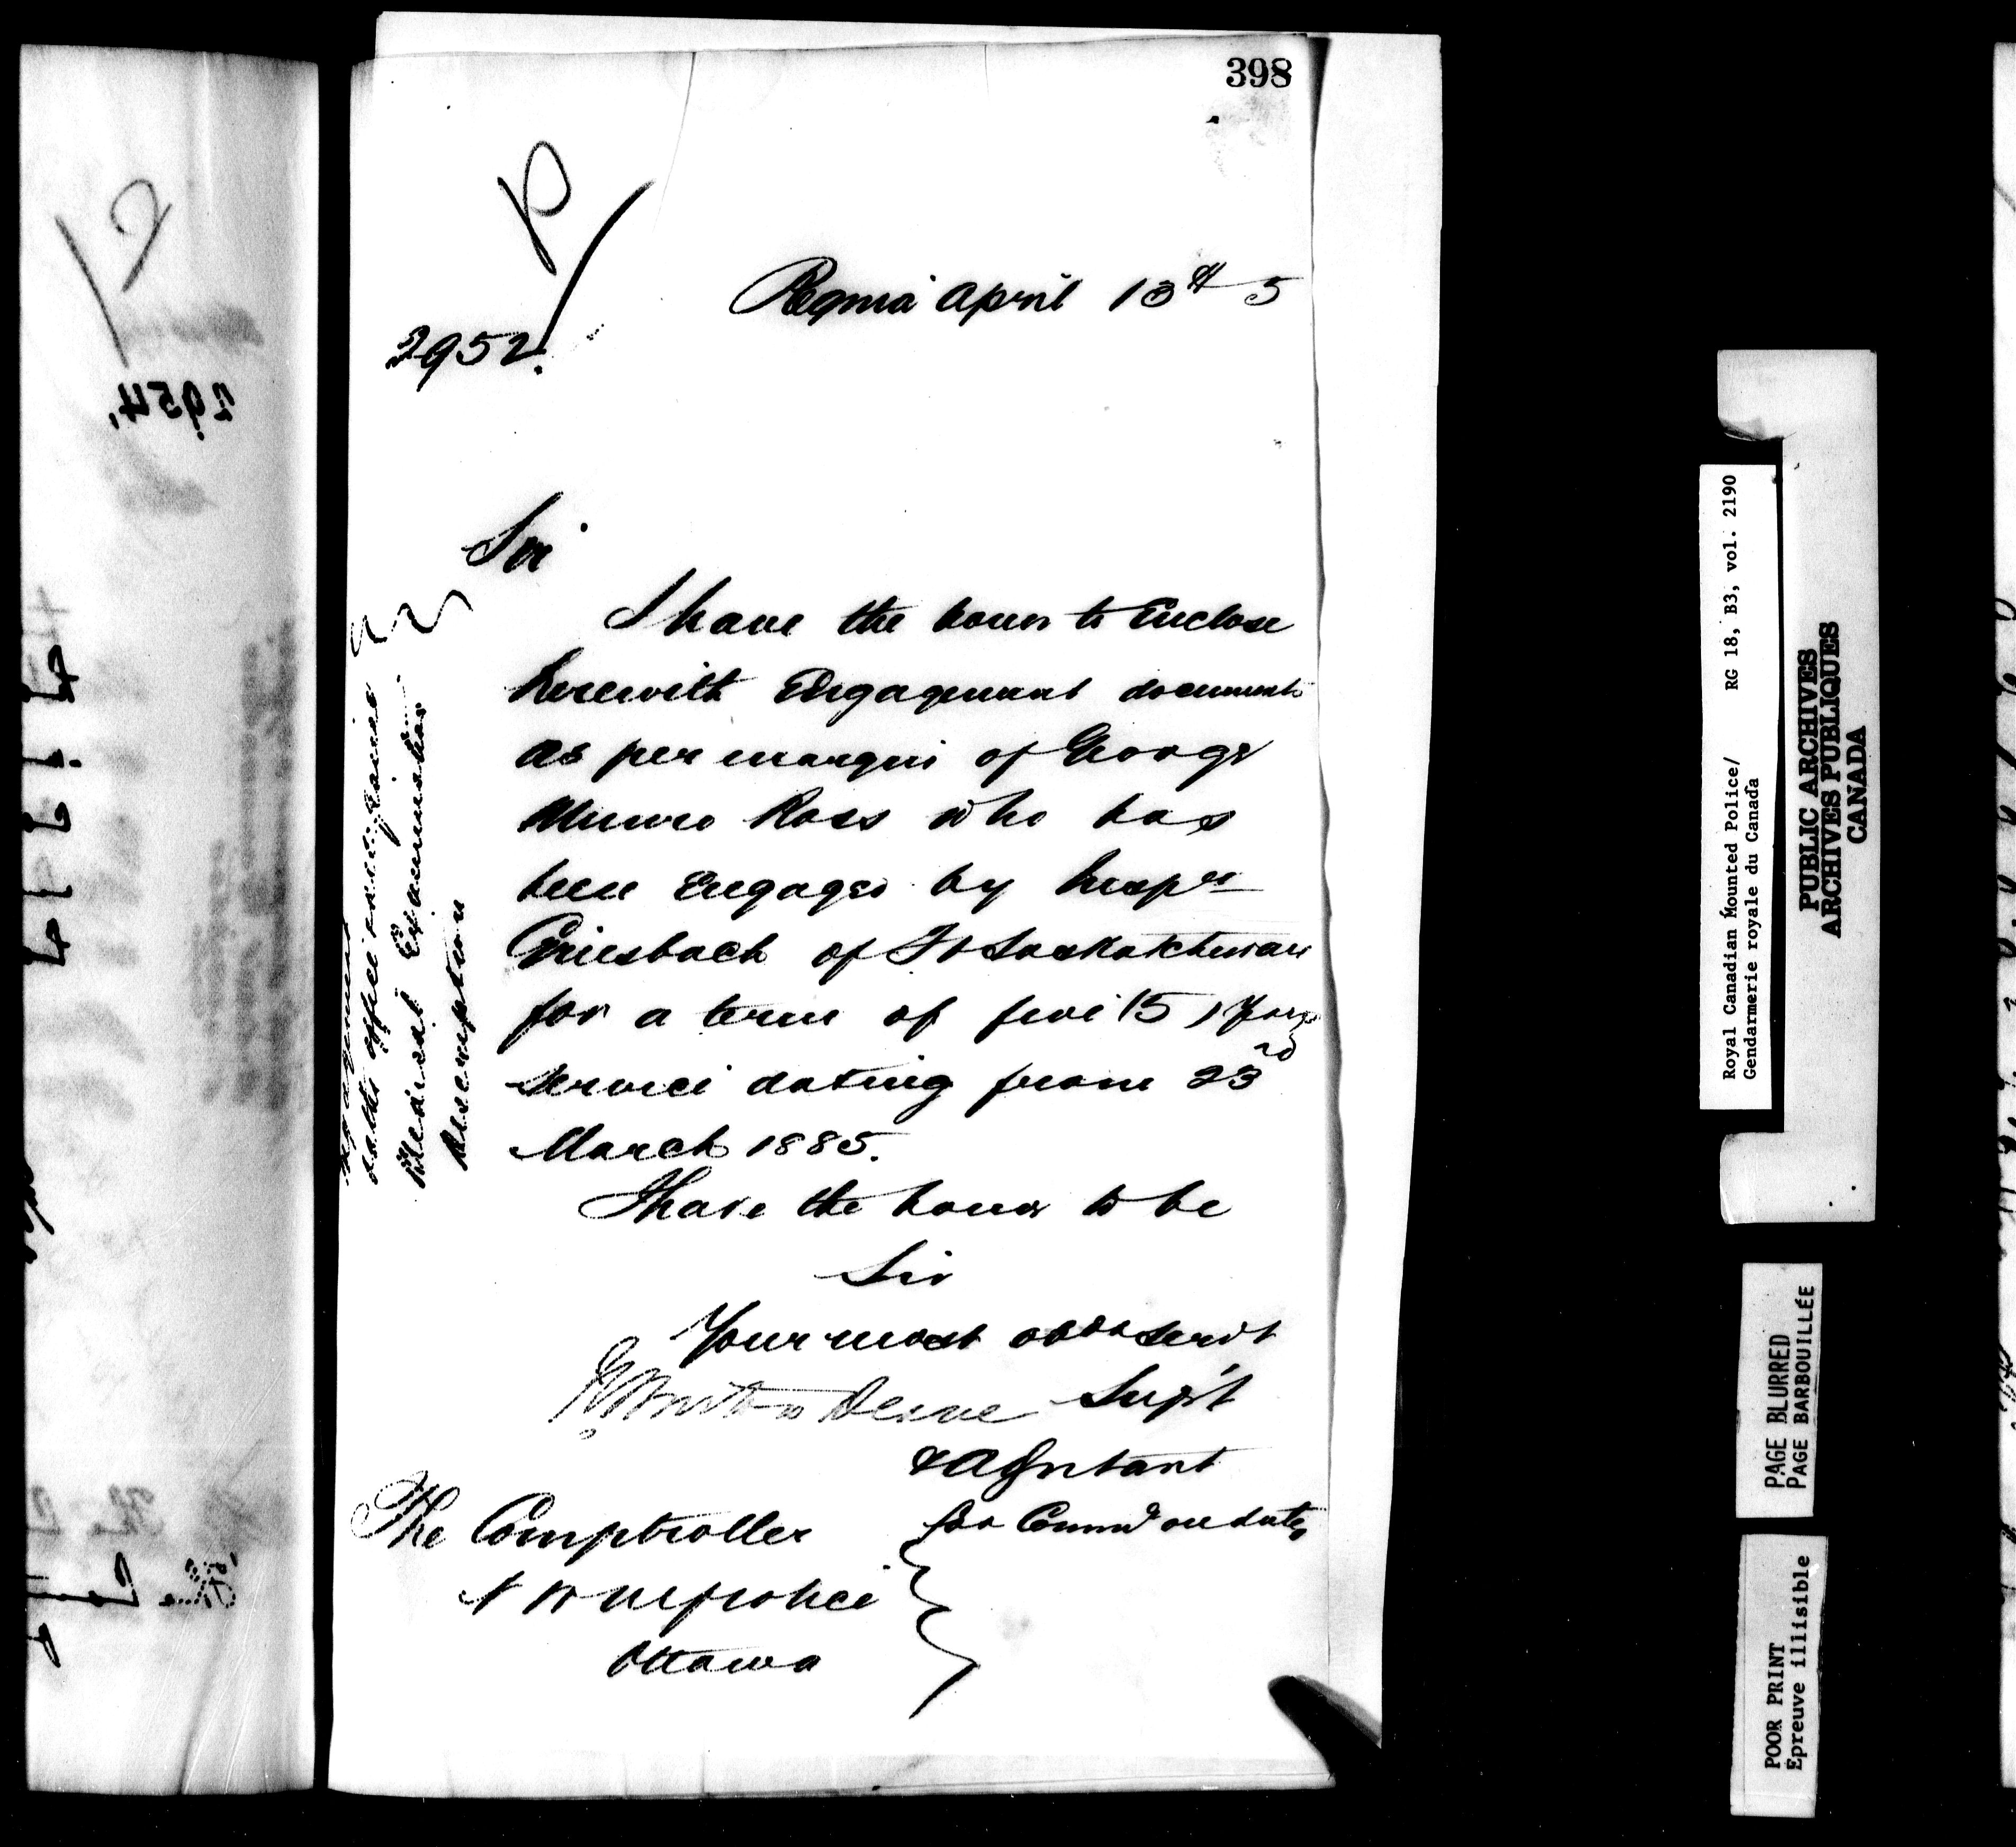 398
P
Regina April 13th 5
2952.
Sir
I have the honor to Enclose
herewith Engagement documents
as per margin of George
Munro Ross who has
been Engaged by Inspr
Griesbach of Ft Saskatchewan
for a term of five (5) years
service dating from 23rd
March 1885.
I have the honor to be
Sir
Your most obdt servt
Burton Deane Sup't
& Adjutant
for Commr on duty
The Comptroller
N W M Police
Ottawa
Engagement
oaths office
Medical Examination
Description
2954.
Royal Canadian Mounted Police/ RG 18, B3, vol. 2190
Gendarmerie royale du Canada
PUBLIC ARCHIVES
ARCHIVES PUBLIQUES
CANADA
PAGE BLURRED
PAGE BARBOUILLÉE
POOR PRINT
Epreuve illisible